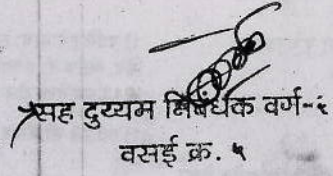 सह दुय्यम निबंधक वर्ग-२
वसई क्र. ५